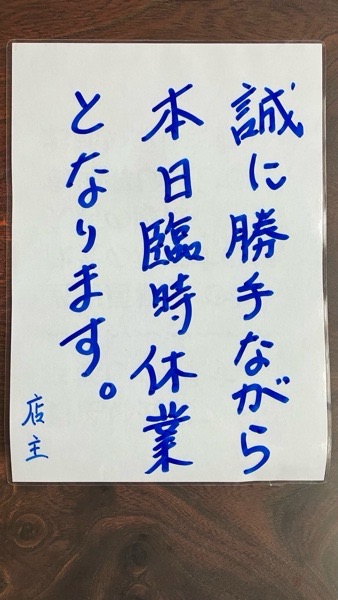 誠に勝手ながら
本日臨時休業
となります。
店主